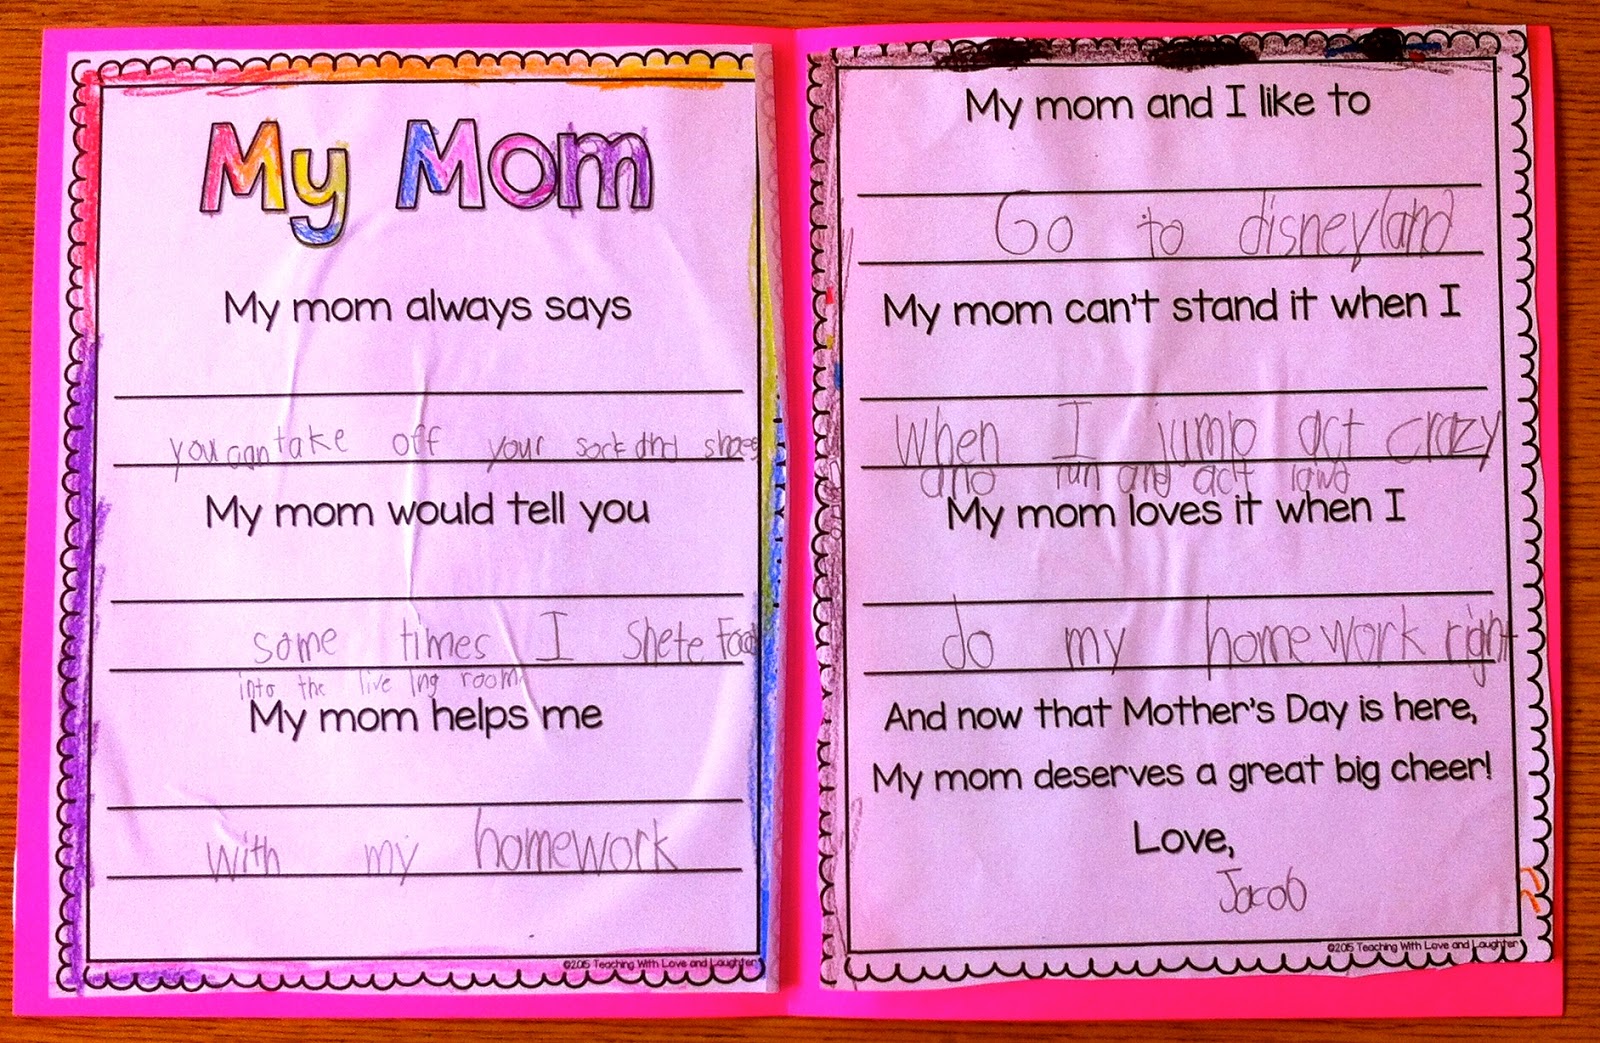 My Mom
My mom always says
you can take off your sock and shoes
My mom would tell you
some times I shete Food
into the live ing room
My mom helps me
with my homework
©2015 Teaching With Love and Laughter
My mom and I like to
Go to disneyland
My mom can't stand it when I
when I jump act crazy
and run and act lawd
My mom loves it when I
do my homework right
And now that Mother's Day is here,
My mom deserves a great big cheer!
Love,
Jacob
©2015 Teaching With Love and Laughter